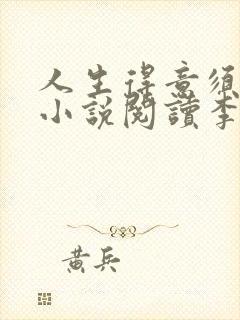 人生得意须
小說閱讀李
黃兵